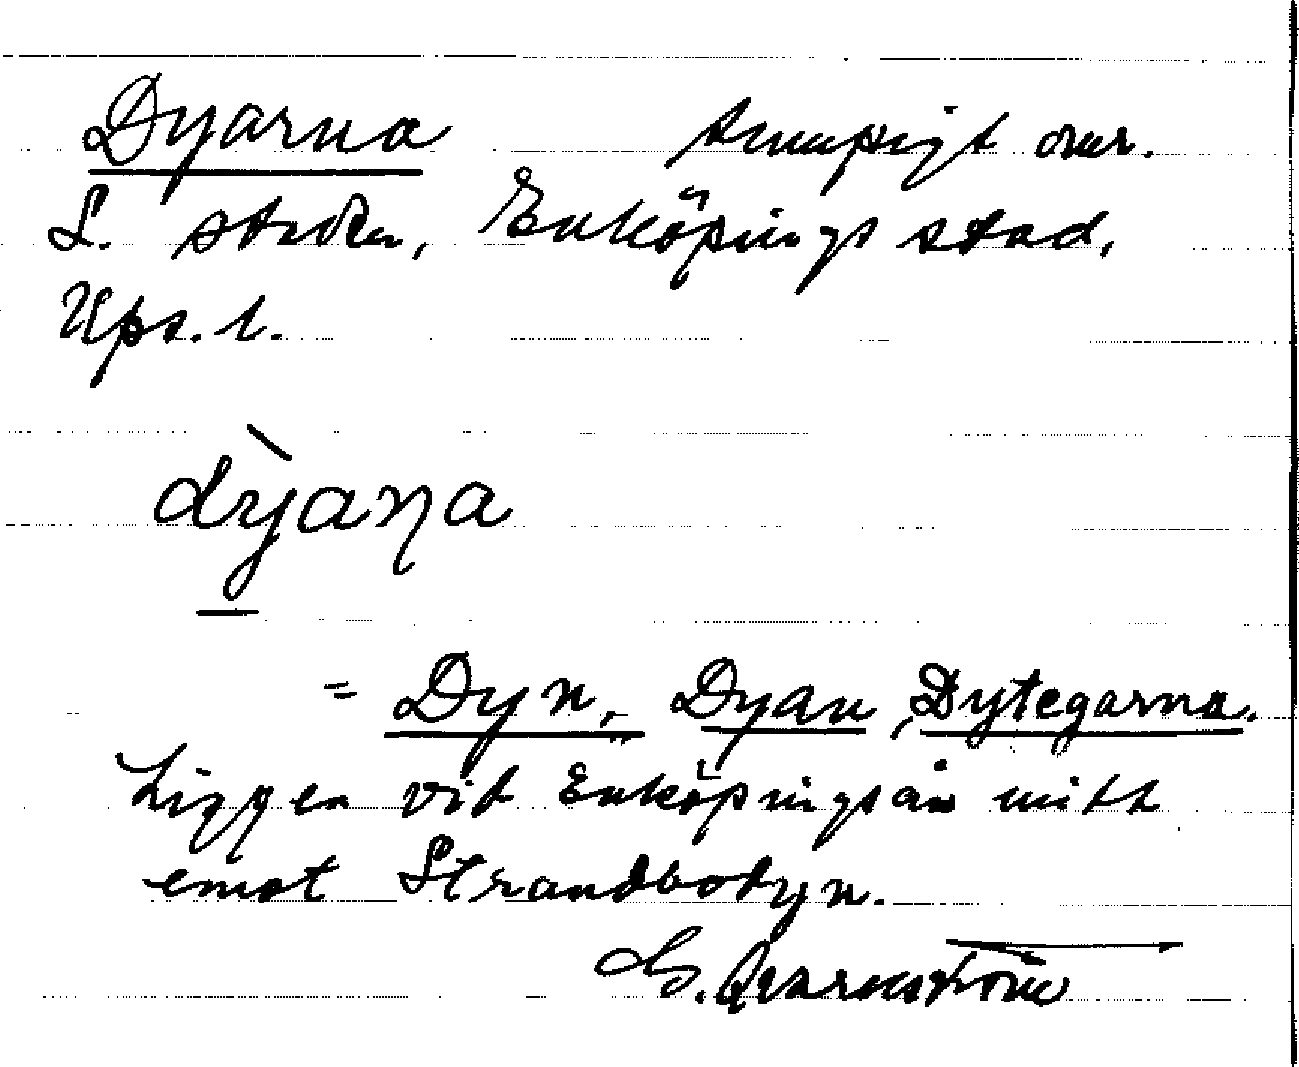 Dyarna sumpigt omr.
S. staden, Enköpings stad,
Ups. l.
dỳaɳa
= Dyn, Dyan, Dytegarna.
Ligger vid Enköpingsån mitt
emot Strandbodyn.
G. Qvarnström